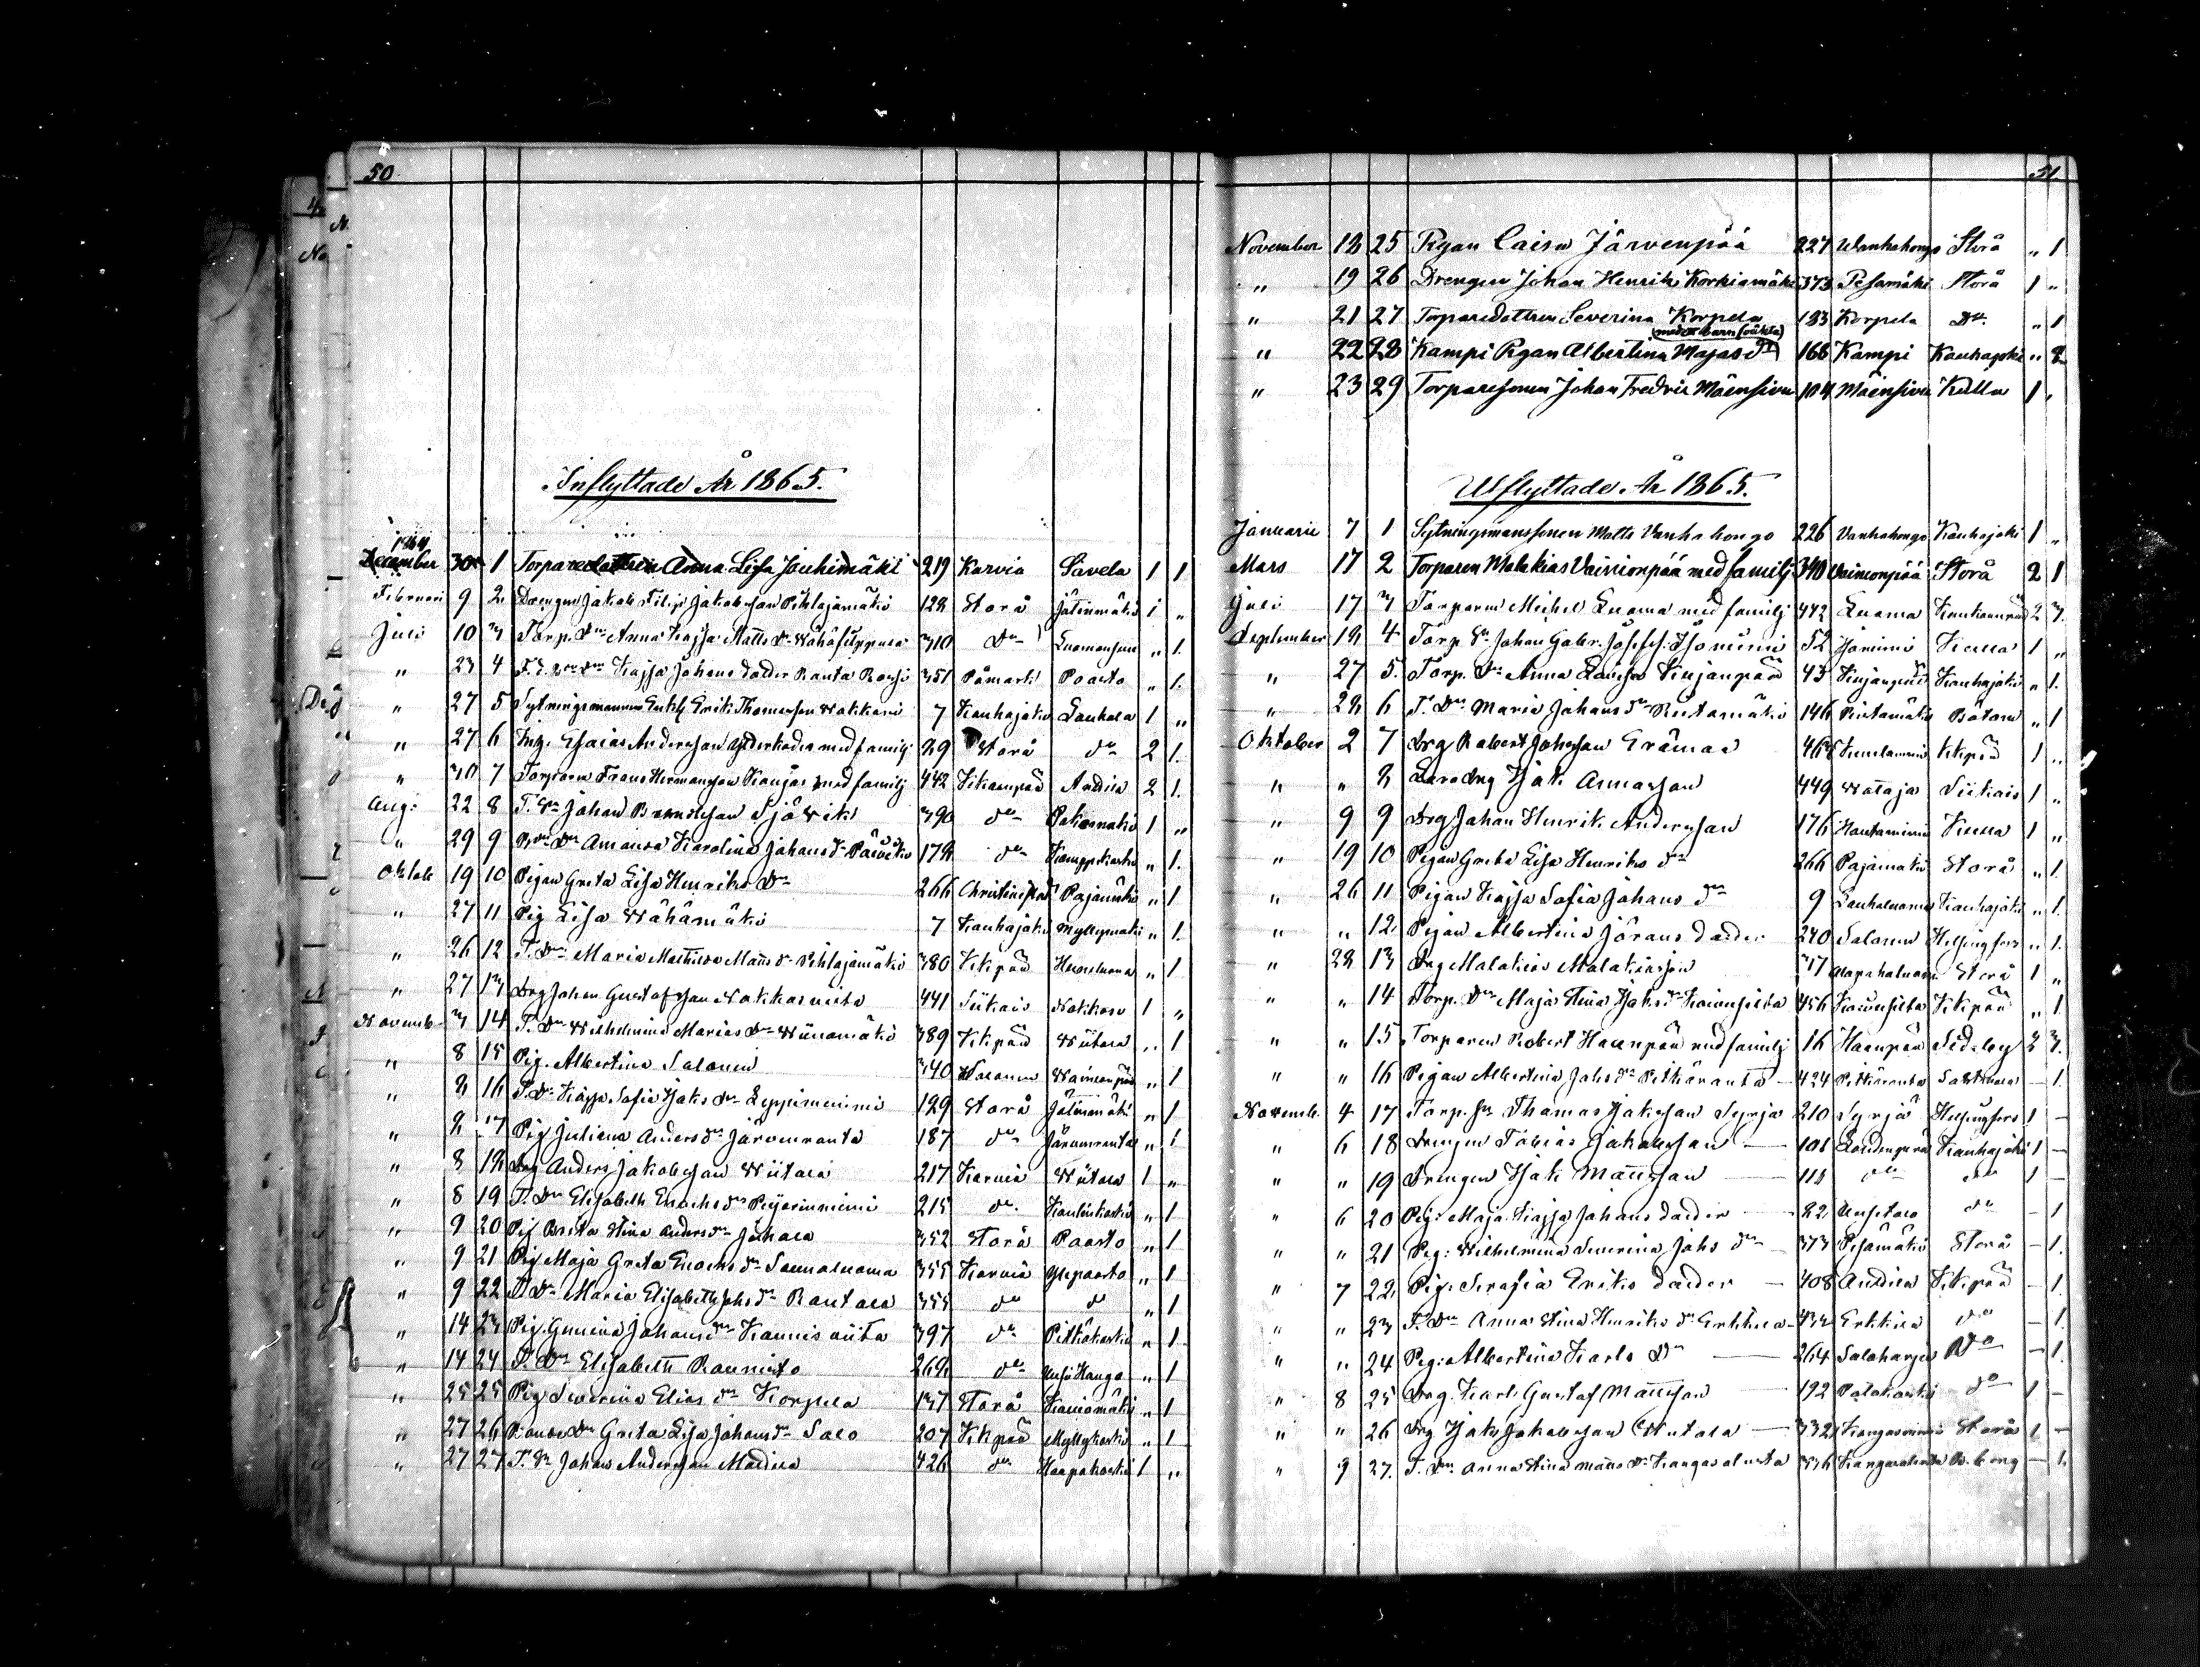 50
Inflyttade År 1865.
1864
December 30 1 Torparedottren Anna Lisa Jouhimäki 219 Karvia Savela 1 1
Februari 9 2 Drengen Jakob Filip Jakobsson Pihlajamäki 122 Storå Jätinmäki 1 "
Juli 10 3 Torp. Dr Anna Kajsa Matts dr Wähäsüppola 310 do Luomansuu " 1.
" 23 4 Kajsa Johans dotter Ranta 351 Påmark Paasto " 1.
" 27 5 Sytningsmannen Enkl Erik Thomasson Nakkari 7 Kauhajoki Lauhala 1 "
" 27 6 Inh. Esaias Andersson Yliverkola med familj 29 Storå do 2 1.
" 30 7 Torparen Frans Hermansson Kaujas med familj 442 Kikanpää Andila 2 1.
Aug: 22 8 T. Sn Johan Berndtsson Sjövik 390 do 1 "
" 29 9 Bde Dr Amanda Karolina Johans dr Päivikö 172 do Kamppikoski " 1.
Oktob 19 10 Pigan Greta Lisa Henriks Dr 266 Christinestad Pajamäki " 1
" 27 11 Pig Lisa Wähämäki 7 Kauhajoki Myllymäki " 1.
" 26 12 T. Dr Maria Mathilda Matts dr Pihlajamäki 380 Kikpää " 1
" 27 13 Drg Johan Gustafsson Nakkasniito 441 Siikais Nakkari 1 "
Novemb 3 14 T. Dr Wilhelmina Marias Dr Wiinamäki 389 Kikpää Wiitala " 1
" 8 15 Pig. Albertina Salonen 340 Wainionpää " 1
" 8 16 T. Dr Kajsa Sofia Isaks dr Leppiniemi 129 Storå Jätinmäki " 1
" 8 17 Pig Juliana Anders dr Järvenranta 187 do Järvenranta " 1
" 8 18 Drg Anders Jakobsson Wiitala 217 Karvia Wiitala 1 "
" 8 19 T. Dr Elisabeth Enochs dr 215 do " 1
" 9 20 Pig Brita Stina Anders dr 352 Storå Paasto " 1
" 9 21 Pig Maja Greta Enochs dr Saunaluoma 355 Karvia Ylipaasto " 1
" 9 22 T. Dr Maria Elisabeth Johs dr Rantala 355 do do " 1
" 14 23 Pig. Gunina Johans dr 397 do Pitkäkoski " 1
" 14 24 T. Dr Elisabeth Rauniito 268 do " 1
" 25 25 Pig Severina Elias dr Korpela 137 Storå " 1
" 27 26 Bonde Dr Greta Lisa Johans dr Salo 207 Kikpää Myllykoski " 1
" 27 27 T. Sn Johan Andersson Mattila 426 do Haapakoski 1 "
51
November 18 25 Pigan Caisa Järvenpää 227 Wanhahongo Storå " 1
" 19 26 Drengen Johan Henrik Korkiamäki 373 Pesämäki Storå 1 "
" 21 27 Torparedottren Severina Korpela 183 Korpela Do " 1
(med ett barn (oäkta)
" 22 28 Kampi Pigan Albertina Majas dr 168 Kampi Kauhajoki " 2
" 23 29 Torparesonen Johan Fredrik Mäensivu 104 Mäensivu Kulla 1 "
Utflyttade År 1865.
Januarii 7 1 Sytningsmanssonen Matts Vanhahongo 226 Vanhahongo Kauhajoki 1 "
Mars 17 2 Torparen Malakias Vainionpää med familj 340 Vainionpää Storå 2 1
Juli 17 3 Torparen Michel Luoma med familj 442 Luoma 2 3.
September 18 4 Torp. Sn Johan Gabr. Josefss. Isoniemi 52 Isoniemi 1 "
" 27 5. Torp. Dr Anna Lovisa Kujanpää 43 Kujanpää Kauhajoki " 1.
" 28 6 T. Dr Maria Johans dr Rintamäki 146 Rintamäki Bötom " 1
Oktober 2 7 Drg Robert Johsson Grämar 468 Kikpää 1 "
" " 8 Isak Annasson 449 Wataja Siikais 1 "
" 9 9 Drg Johan Henrik Andersson 176 Hautaniemi 1 "
" 19 10 Pigan Greta Lisa Henriks dr 266 Pajamäki Storå " 1.
" 26 11 Pigan Kajsa Sofia Johans dr 9 Lauhaluoma Kauhajoki " 1.
" " 12 Pigan Albertina Jörans dotter 240 Salonen Helsingfors " 1.
" 28 13 Drg Malakias Malakiasson 317 Haapahaluoma Storå 1 "
" " 14 Torp. Dr Maja Stina Isaks dr Kaivusilta 456 Kaivusilta Kikpää " 1.
" " 15 Torparen Robert Haanpää med familj 16 Haanpää Sideby 2 3.
" " 16 Pigan Albertina Johs dr Pitkäranta 424 Pitkäranta — 1.
Novemb. 4 17 Torp. Sn Thomas Isaksson Syrjä 210 Syrjä Helsingfors 1 —
" 6 18 Drengen Tobias Jakobsson — 108 Kauhajoki 1 —
" " 19 Drengen Isak Mattsson — 111 do do 1 —
" 6 20 Pig: Maja Kajsa Johans dotter 82 Uusitalo do — 1
" " 21 Pig: Wilhelmina Severina Johs dr 373 Pesämäki Storå — 1.
" 7 22 Pig: Serafia Eriks dotter — 408 Andila Kikpää — 1.
" " 23 T. Dr Anna Stina Henriks dr Erkkila 432 Erkkila do — 1.
" " 24 Pig: Albertina Karls Dr — 264 Salaharju Do — 1.
" 8 25 Drg. Karl Gustaf Mattsson 192 Palokoski do 1 —
" " 26 Drg Isak Jakobsson — 332 Kangasniemi Storå 1 —
" 9 27. T. Dr Anna Stina Matts dr Kangasalusta 336 Kangasalusta — 1.